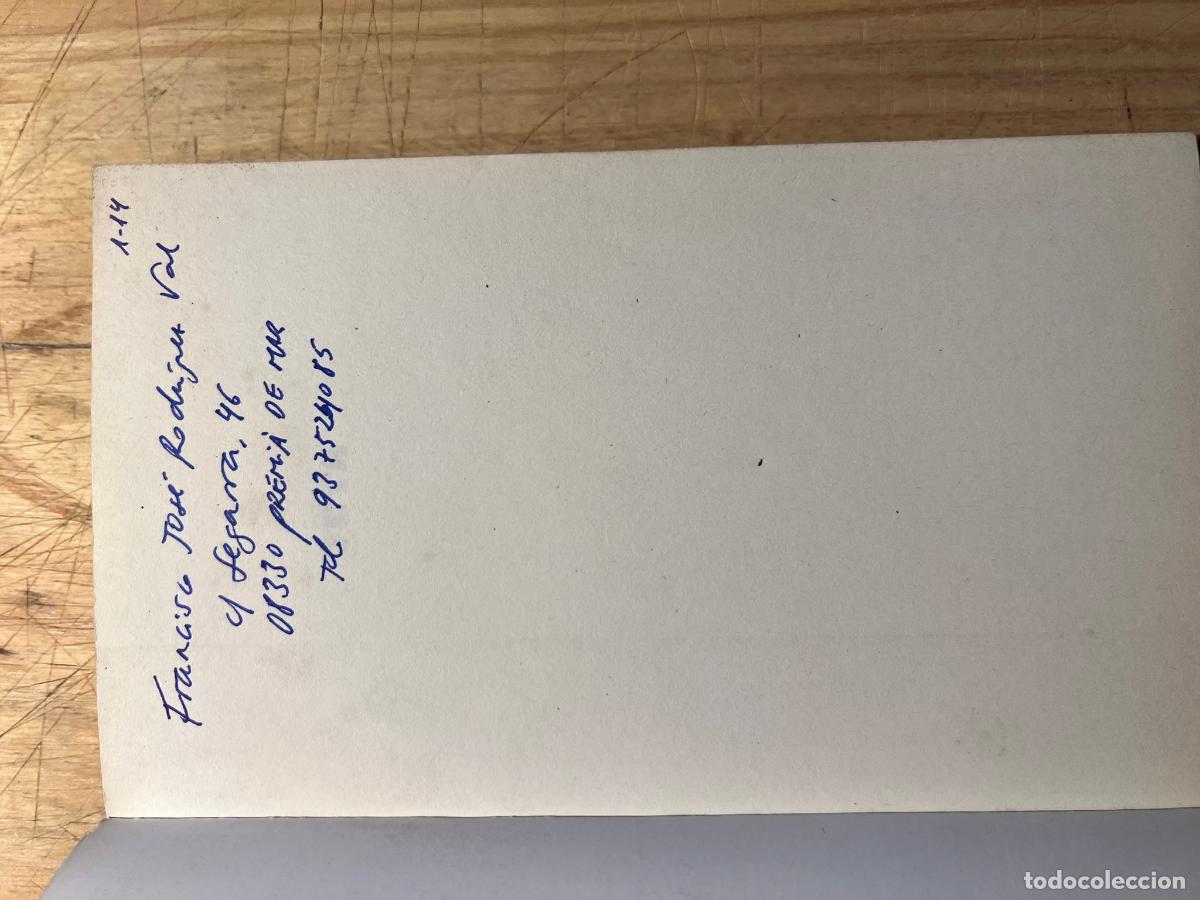 1-14
Francisco JOSÉ Rodríguez Val
c/ Segarra, 46
08330 PREMIÀ DE MAR
Tel 937524085
todocoleccion